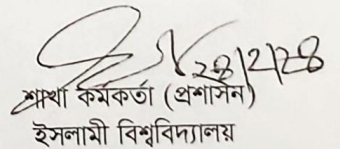 ২৪|২|২৪
শাখা কর্মকর্তা (প্রশাসন)
ইসলামী বিশ্ববিদ্যালয়